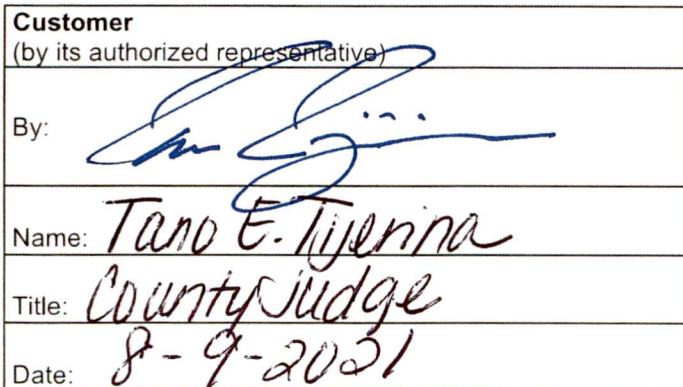 Customer
(by its authorized representative)
By:
Name: Tano E. Tijerina
Title: County Judge
Date: 8-9-2021